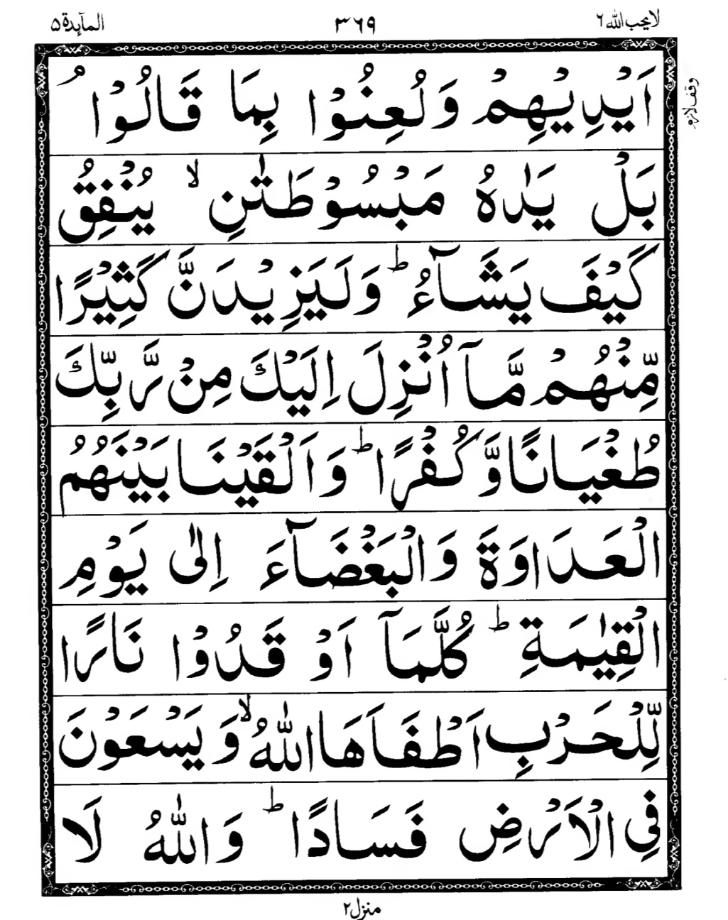 لایحب الله ٦ ٣٦٩ المآىِٕدة ٥
وقف لازم
اَیْدِیْهِمْ وَلُعِنُوْا بِمَا قَالُوْا ۘ
بَلْ یَدٰهُ مَبْسُوْطَتٰنِ ۙ یُنْفِقُ
كَیْفَ یَشَآءُ ؕ وَلَیَزِیْدَنَّ كَثِیْرًا
مِّنْهُمْ مَّاۤ اُنْزِلَ اِلَیْكَ مِنْ رَّبِّكَ
طُغْیَانًا وَّكُفْرًا ؕ وَاَلْقَیْنَا بَیْنَهُمُ
الْعَدَاوَةَ وَالْبَغْضَآءَ اِلٰی یَوْمِ
الْقِیٰمَةِ ؕ كُلَّمَاۤ اَوْ قَدُوْا نَارًا
لِّلْحَرْبِ اَطْفَاَهَا اللّٰهُ ۙ وَیَسْعَوْنَ
فِی الْاَرْضِ فَسَادًا ؕ وَاللّٰهُ لَا
منزل ٢